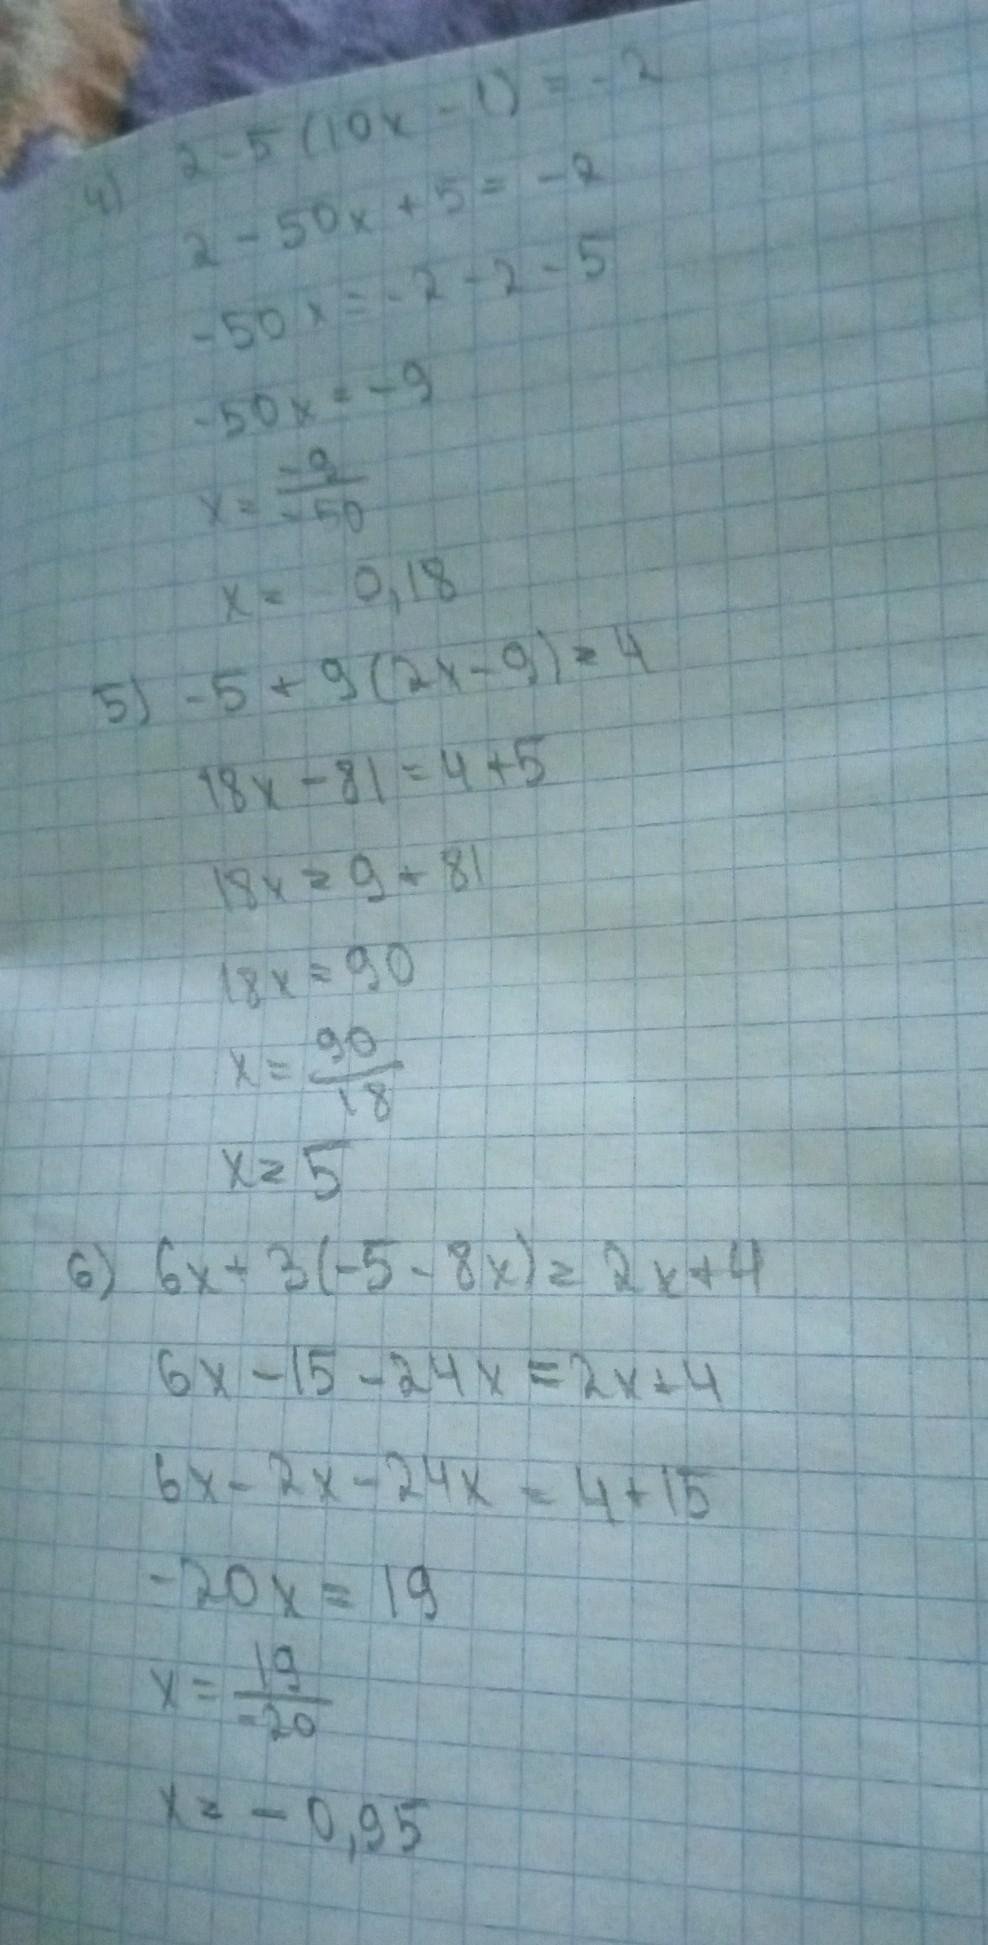 4) 2 - 5 (10x - 1) = -2
2 - 50x + 5 = -2
-50x = -2 - 2 - 5
-50x = -9
x = -9/-50
x = 0,18
5) -5 + 9 (2x - 9) = 4
18x - 81 = 4 + 5
18x = 9 + 81
18x = 90
x = 90/18
x = 5
6) 6x + 3(-5 - 8x) = 2x + 4
6x - 15 - 24x = 2x + 4
6x - 2x - 24x = 4 + 15
-20x = 19
x = 19/-20
x = -0,95